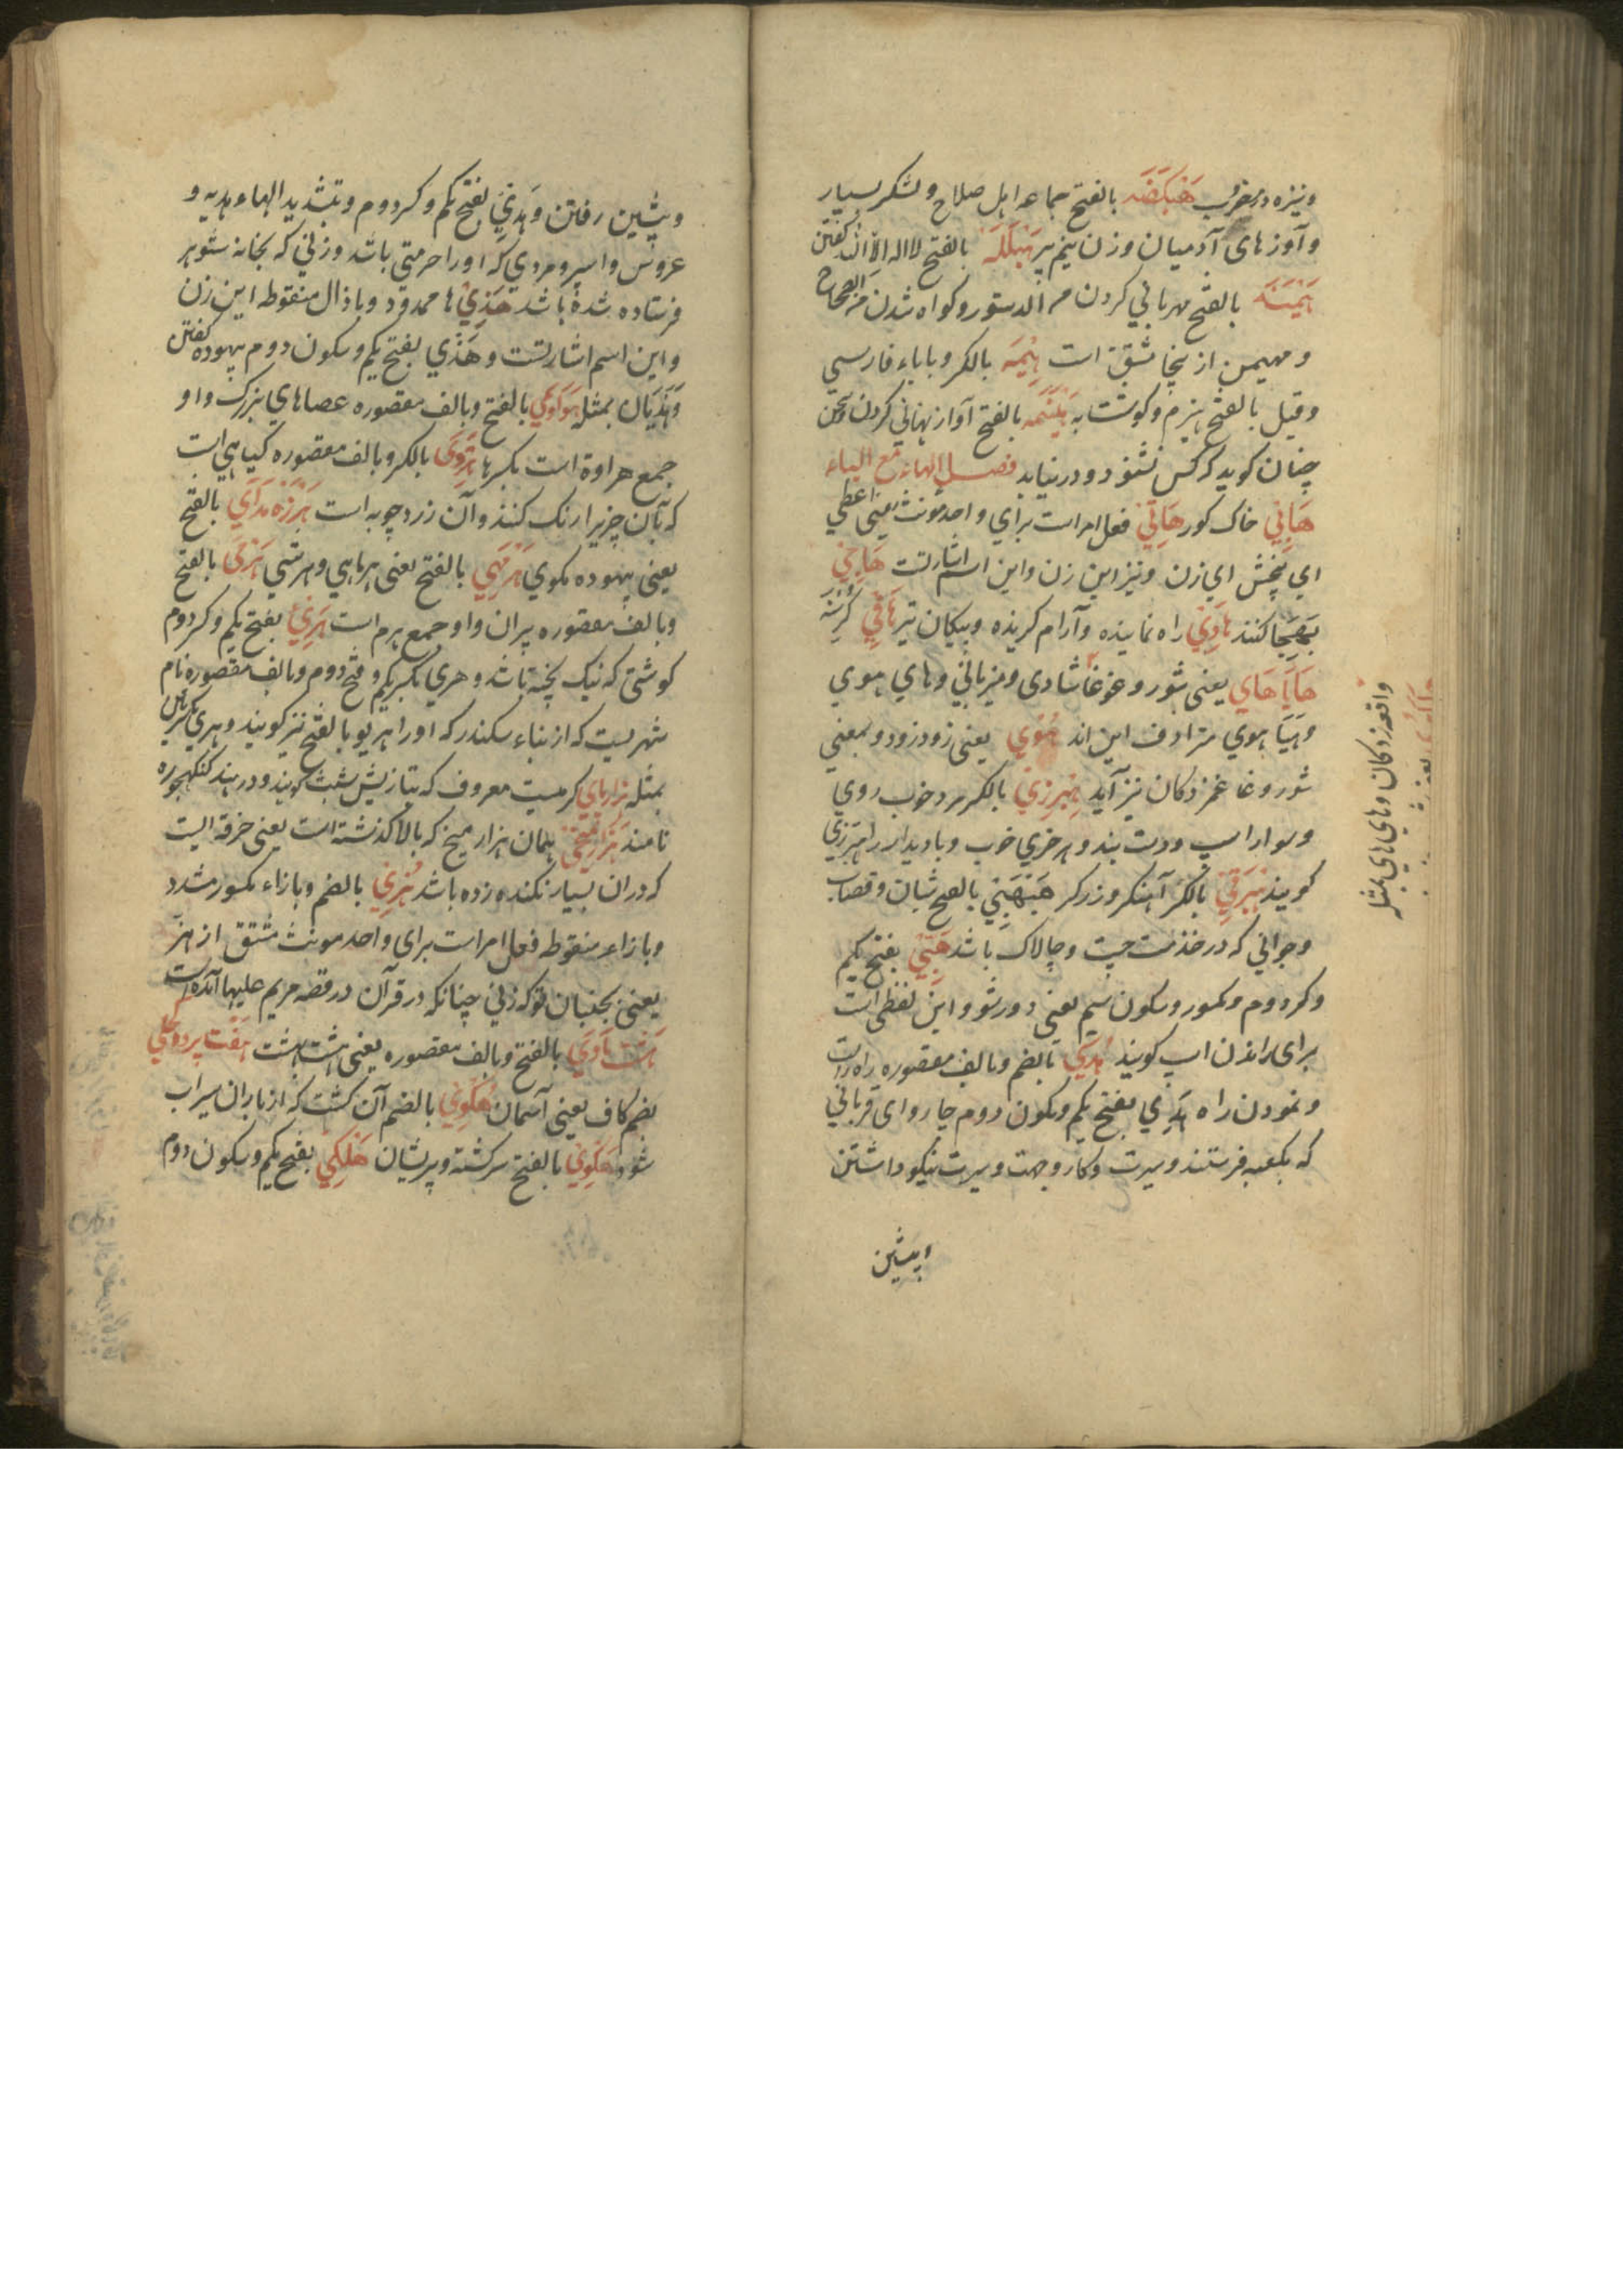 ونیزه در مغرب هَیْکَضَه بالفتح جماعه اهل صلاح ولشکر بسیار
وآوز های آدمیان وزن نیم پیر هَیْلَلَه بالفتح لا اله الا الله گفتن
هَیْمَنَه بالفتح مهربانی کردن من الدستور وکواه شدن من الصحاح
ومهیمن از ینجا مشتق است هِیْمَه بالکسر وباباء فارسی
وقیل بالفتح هیزم وکوشتابه هَیْنَمَه بالفتح آواز نهانی کردن وسخن
چنان کوید که کس نشنود ودر نیابد فصل الهاء مع الیاء
هَابِي خاک کور هَاتِي فعل امر است برای واحد مؤنث یعنی اعطی
ای ببخش ای زن ونیز این زن واین اسم اشارتست هَاجِي
کنند هَادِي راه نماینده وآرام کرینده وپیکان تیر هَافِي کرسنه
هَایَاهَاي یعنی شور وغوغا شادی ومیزبانی وهای هوی
وهیاهوی مترادف این اند هُوي یعنی زود زود وبمعنی
شور وغا غمزدکان نیز آید هِبْرِزِي بالکسر مرد خوب روی
وسوار اسپ ودست بند وهر خری خوب وبا دیدار را هبرزی
کویند هِبْرَقِي بالکسر آهنکر وزرکر هَبْهَبِي بالفتح شبان وقصاب
وجوانی که در خدمت چست وچالاک باشد هَبِي بفتح یکم
وکسر دوم وسکون سیم یعنی دور شو واین لفظی است
برای راندن اسپ کویند هُدَي بالضم وبالف مقصوره راه راست
ونمودن راه هَدْي بفتح یکم وسکون دوم چاروای قربانی
که بکعبه فرستند وسیرت وکار وجهت وسیرت نیکو داشتن
وپیشین
واقعه زدکان وهای های بمثله
وپیشین رفتن وهَدِيّ بفتح یکم وکسر دوم وتشدید الهاء هدیه و
عروس واسیر ومردی که اورا حرمتی باشد وزنی که بخانه شوهر
فرستاده شده باشد هَذِي ها ممدود وباذال منقوطه این زن
واین اسم اشارتست وهَذْي بفتح یکم وسکون دوم بیهوده گفتن
وهَذَیَان بمثله بالفتح وبالف مقصوره عصاهای بزرک واو
جمع هراوة است بکسر ها هِرْوَي بالکسر وبالف مقصوره کیاهی است
که بآن چیزیرا رنک کنند وآن زردچوبه است هَرْزَه مَدَاي بالفتح
یعنی بیهوده مکوی هَرْمَهِي بالفتح یعنی هر ماهی وهر شیی هَرْمَي بالفتح
وبالف مقصوره پیران واو جمع هرم است هَرِي بفتح یکم وکسر دوم
کوشتی که نیک پخته باشد وهری بکسر یکم وفتح دوم وبالف مقصوره نام
شهریست که از بناء سکندر که اورا هریو بالفتح نیز کویند وهری بکسرتین
بمثله هزارپاي کرمیست معروف که بتازیش شبث کویند ودر هند کنکهجوره
نامند هَزَارْمِیخِي همان هزار میخ که بالا کذشته است یعنی خرقه ایست
که دران بسیار نکنده زده باشد هُزِّي بالضم وبازاء مکسور مشدد
وبازاء منقوطه فعل امر است برای واحد مونث مشتق از هز
یعنی بجنبان تو که زنی چنانکه در قرآن در قصه مریم علیها آمده است
هَشْت مَاوَي بالفتح وبالف مقصوره یعنی هشت بهشت هَفْت پَرده
بضم کاف یعنی آسمان هُکوِي بالضم آن کشت که از باران سیراب
شود هَکوِي بالفتح سرکشته وپریشان هَلْکِي بفتح یکم وسکون دوم